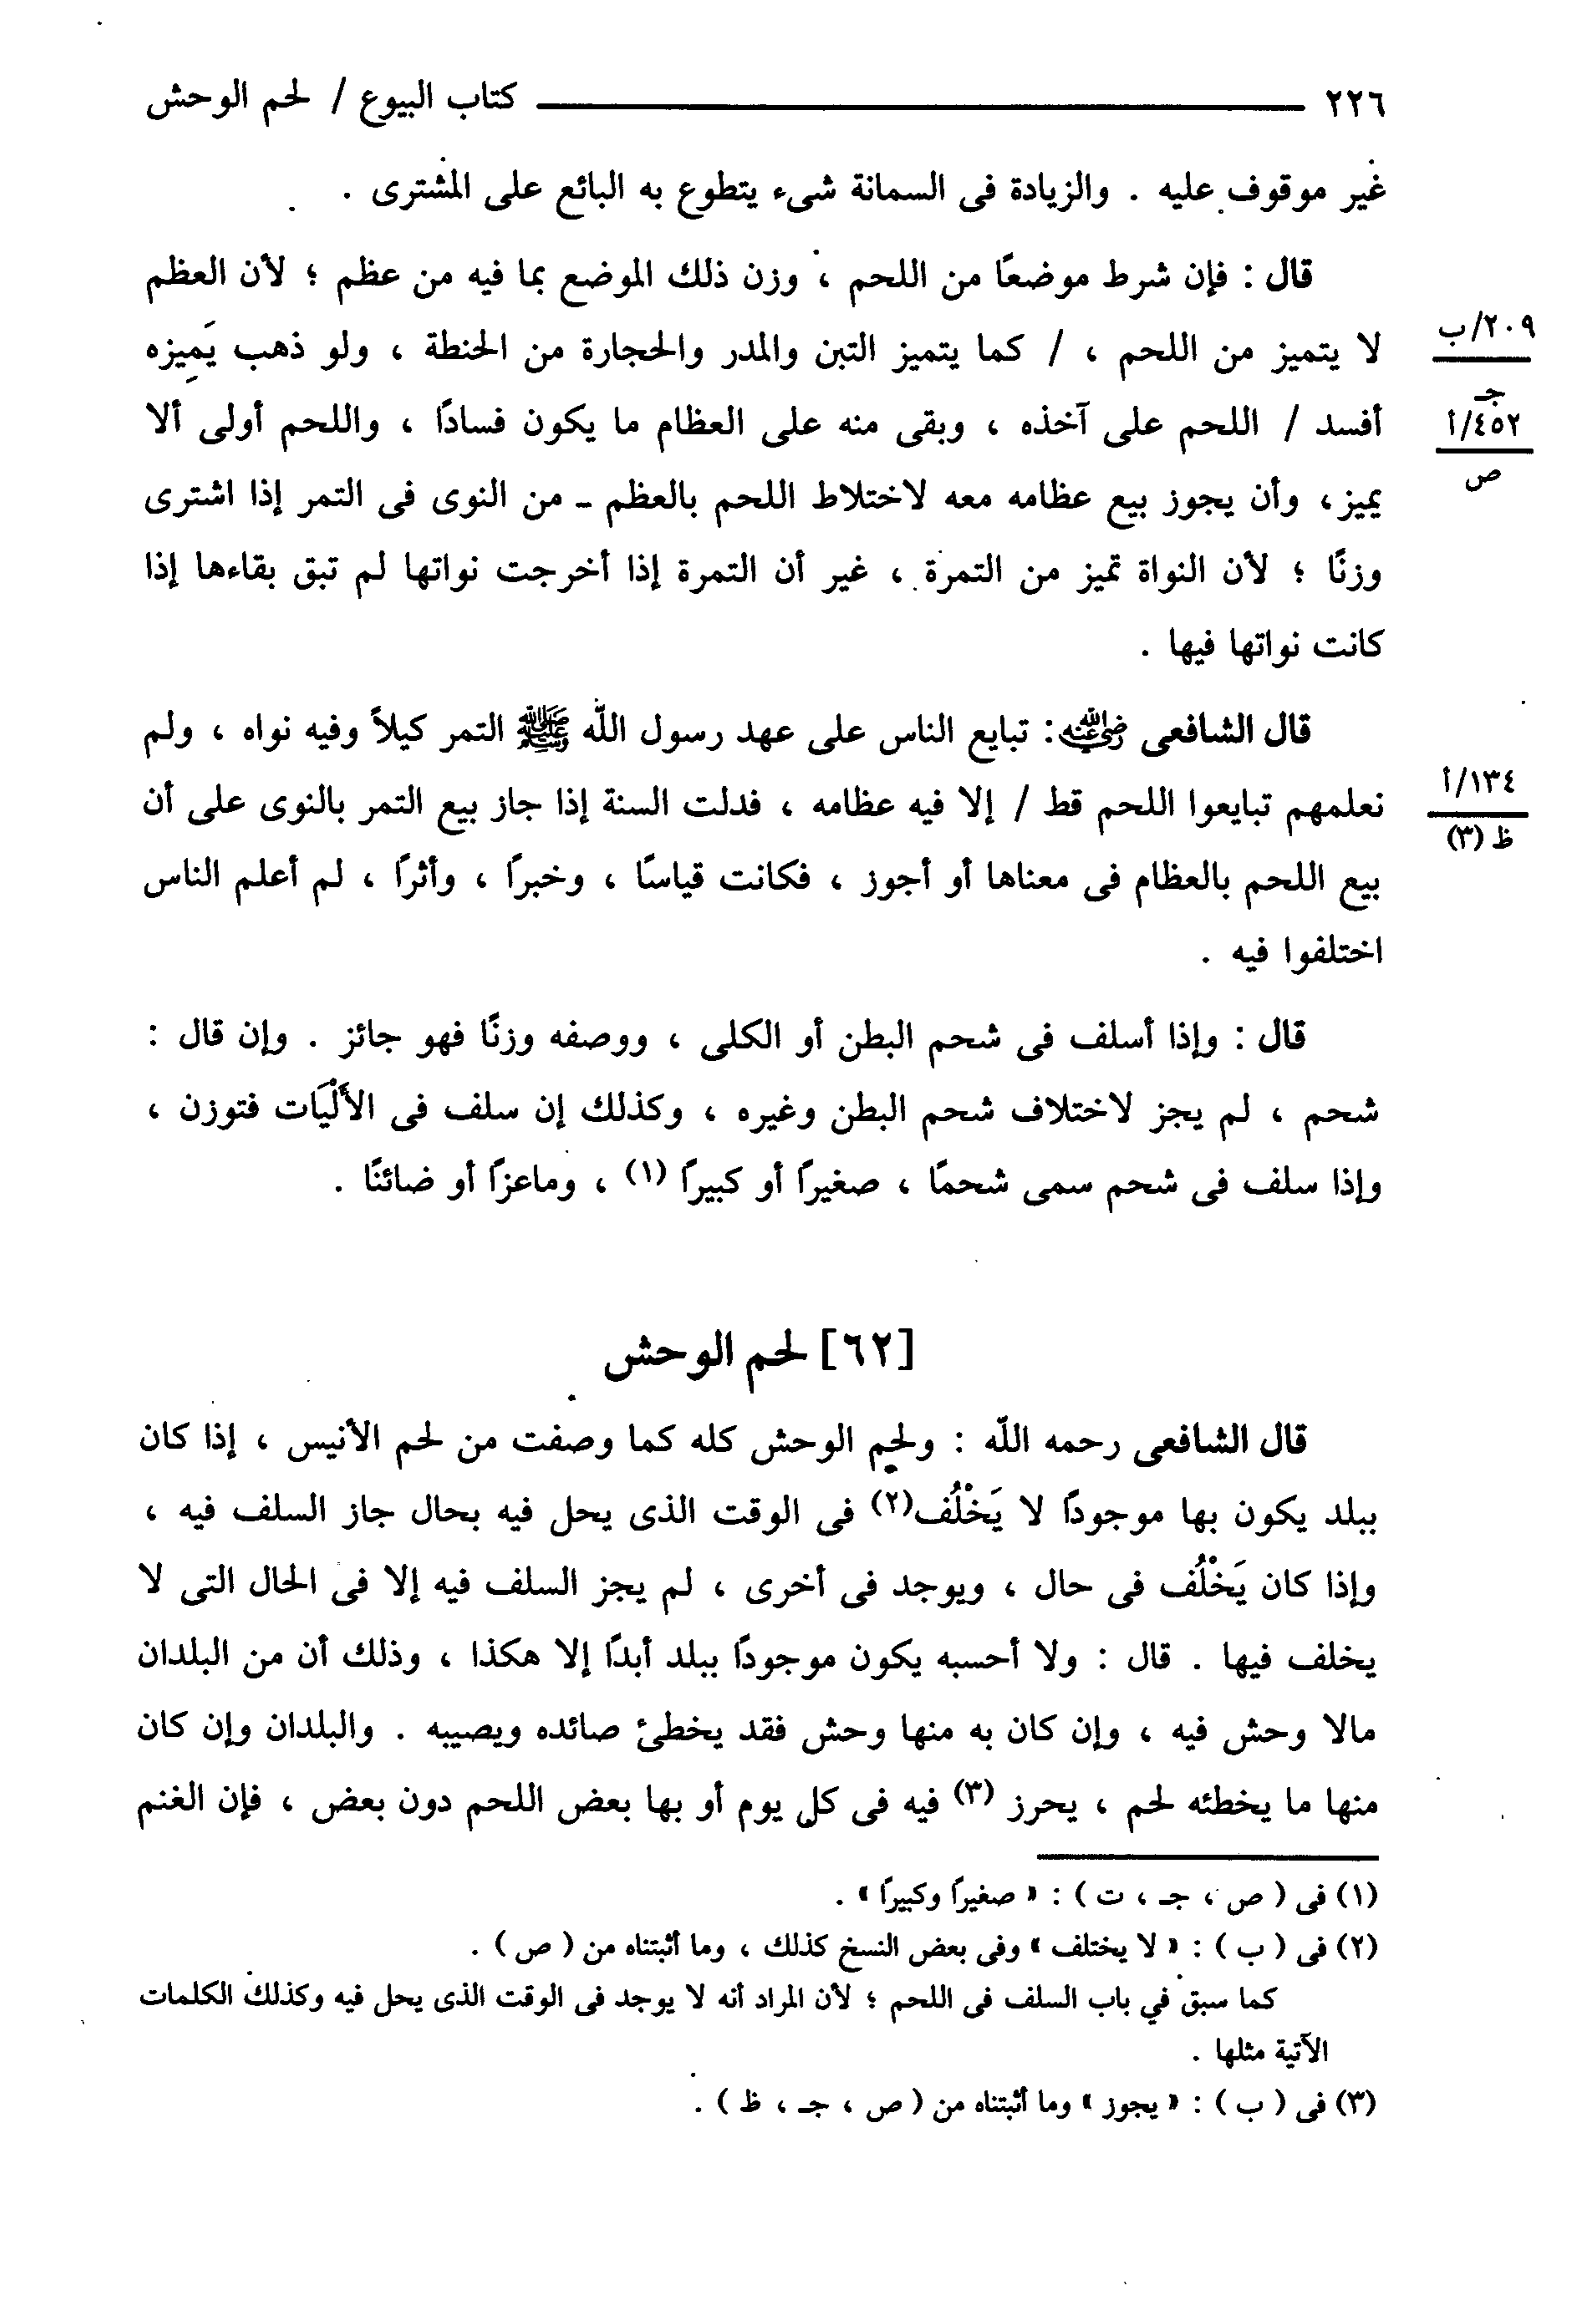 ٢٢٦ كتاب البيوع / لحم الوحش
غير موقوف عليه . والزيادة فى السمانة شىء يتطوع به البائع على المشترى .
قال : فإن شرط موضعًا من اللحم ، وزن ذلك الموضع بما فيه من عظم ؛ لأن العظم
لا يتميز من اللحم ، / كما يتميز التبن والمدر والحجارة من الحنطة ، ولو ذهب يَمِيزه
أفسد / اللحم على آخذه ، وبقى منه على العظام ما يكون فسادًا ، واللحم أولى ألا
يميز، وأن يجوز بيع عظامه معه لاختلاط اللحم بالعظم ـ من النوى فى التمر إذا اشترى
وزنًا ؛ لأن النواة تميز من التمرة ، غير أن التمرة إذا أخرجت نواتها لم تبق بقاءها إذا
كانت نواتها فيها .
٢٠٩/ب
جـ
٤٥٢/أ
ص
قال الشافعى رضي الله عنه : تبايع الناس على عهد رسول الله ﷺ التمر كيلاً وفيه نواه ، ولم
نعلمهم تبايعوا اللحم قط / إلا فيه عظامه ، فدلت السنة إذا جاز بيع التمر بالنوى على أن
بيع اللحم بالعظام فى معناها أو أجوز ، فكانت قياسًا ، وخبرًا ، وأثرًا ، لم أعلم الناس
اختلفوا فيه .
١٣٤/أ
ظ (٣)
قال : وإذا أسلف فى شحم البطن أو الكلى ، ووصفه وزنًا فهو جائز . وإن قال :
شحم ، لم يجز لاختلاف شحم البطن وغيره ، وكذلك إن سلف فى الأَلْيَات فتوزن ،
وإذا سلف فى شحم سمى شحمًا ، صغيرًا أو كبيرًا (١) ، وماعزًا أو ضائنًا .
[٦٢] لحم الوحش
قال الشافعى رحمه الله : ولحم الوحش كله كما وصفت من لحم الأنيس ، إذا كان
ببلد يكون بها موجودًا لا يَخْلُف(٢) فى الوقت الذى يحل فيه بحال جاز السلف فيه ،
وإذا كان يَخْلُف فى حال ، ويوجد فى أخرى ، لم يجز السلف فيه إلا فى الحال التى لا
يخلف فيها . قال : ولا أحسبه يكون موجودًا ببلد أبدًا إلا هكذا ، وذلك أن من البلدان
مالا وحش فيه ، وإن كان به منها وحش فقد يخطئ صائده ويصيبه . والبلدان وإن كان
منها ما يخطئه لحم ، يحرز (٣) فيه فى كل يوم أو بها بعض اللحم دون بعض ، فإن الغنم
(١) فى ( ص ، جـ ، ت ) : « صغيرًا وكبيرًا » .
(٢) فى ( ب ) : « لا يختلف » وفى بعض النسخ كذلك ، وما أثبتناه من ( ص ) .
كما سبق في باب السلف فى اللحم ؛ لأن المراد أنه لا يوجد فى الوقت الذى يحل فيه وكذلك الكلمات
الآتية مثلها .
(٣) فى ( ب ) : « يجوز » وما أثبتناه من ( ص ، جـ ، ظ ) .